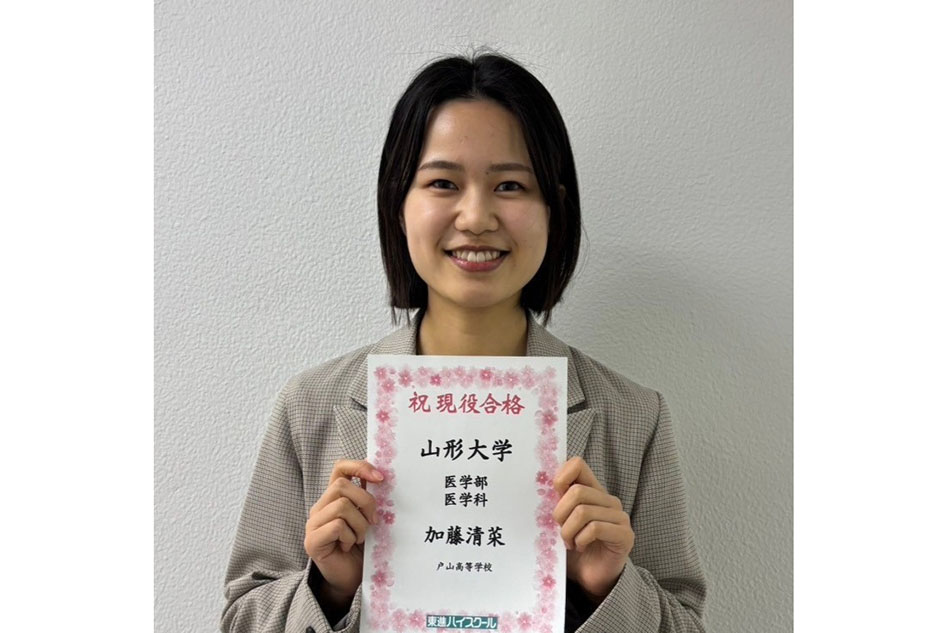 祝 現役合格
山形大学
医学部
医学科
加藤清菜
戸山高等学校
東進ハイスクール